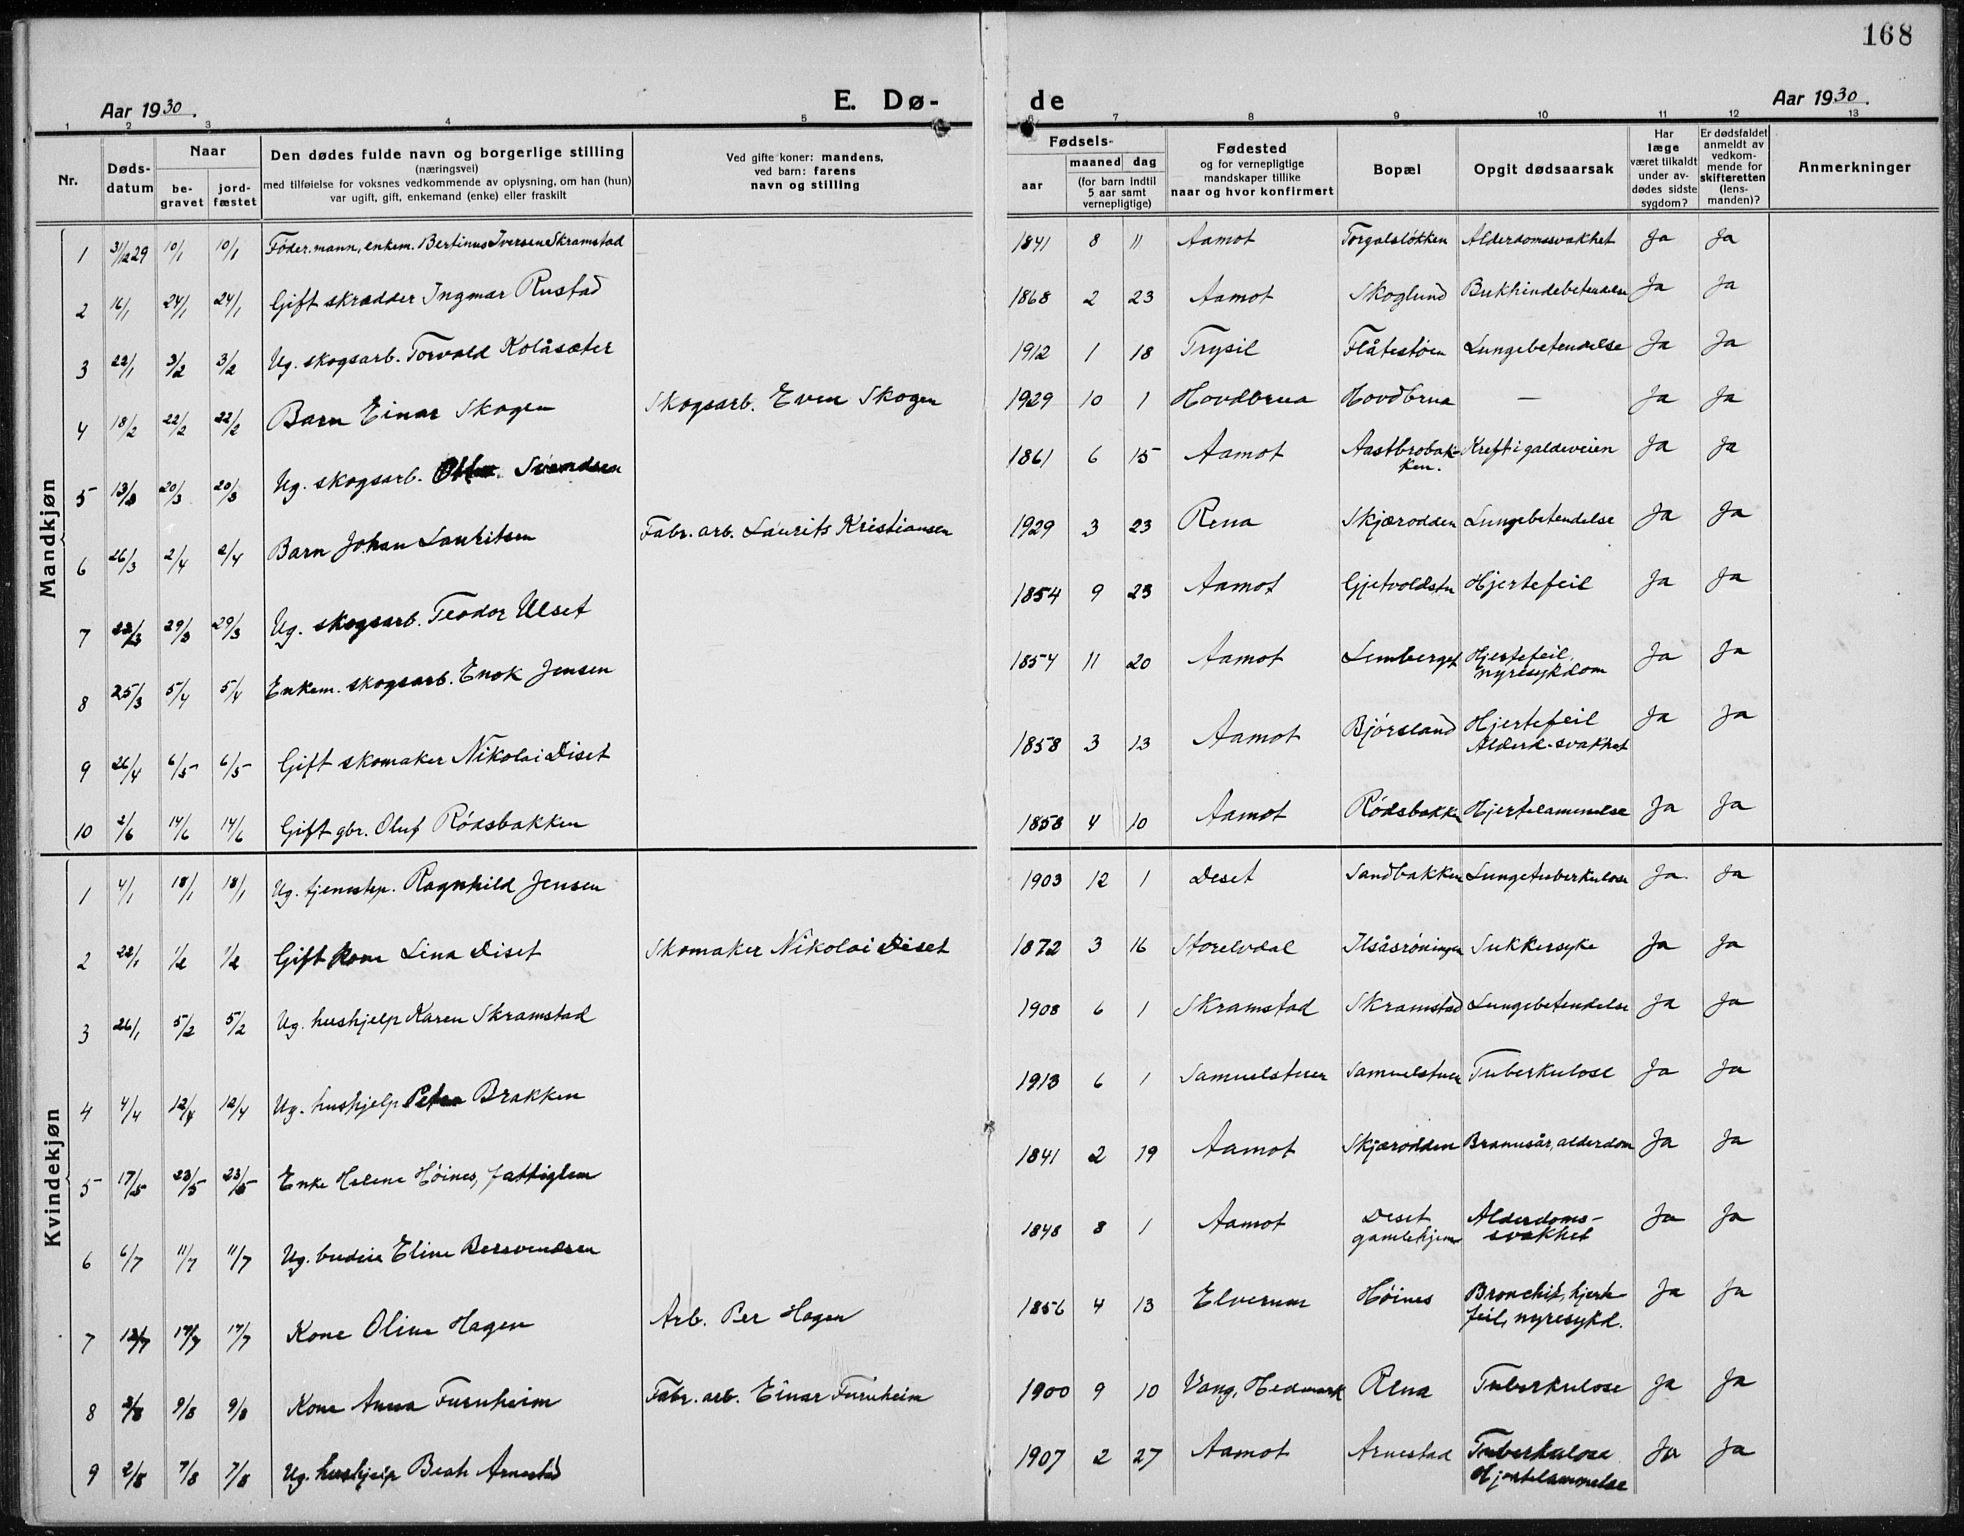 168
Aar 1930.
E. Dø-
de
Aar 1930.
1 2 3 4 5 6 7 8 9 10 11 12 13
Nr.
Døds-
datum
Naar
be-
gravet
jord-
fæstet
Den dødes fulde navn og borgerlige stilling
(næringsvei)
med tilføielse for voksnes vedkommende av oplysning, om han (hun)
var ugift, gift, enkemand (enke) eller fraskilt
Ved gifte koner: mandens,
ved barn: farens
navn og stilling
Fødsels-
aar
maaned dag
(for barn indtil
5 aar samt
vernepligtige)
Fødested
og for vernepligtige
mandskaper tillike
naar og hvor konfirmert
Bopæl
Opgit dødsaarsak
Har
læge
været tilkaldt
under av-
dødes sidste
sygdom?
Er dødsfaldet
anmeldt av
vedkom-
mende for
skifteretten
(lens-
manden)?
Anmerkninger
Mandkjøn
1 31/12 29 10/1 10/1 Føder.mann, enkem. Bertinus Iversen Skramstad 1841 8 11 Aamot Torgalsløkken Alderdomssvakhet Ja Ja
2 16/1 24/1 24/1 Gift skrædder Ingmar Rustad 1868 2 23 Aamot Skoglund Bukhindebetendelse Ja Ja
3 22/1 3/2 3/2 Ug. skogsarb. Torvald Kolåsæter 1912 1 18 Trysil Flåtestøen Lungebetendelse Ja Ja
4 18/2 22/2 22/2 Barn Einar Skogen Skogsarb. Even Skogen 1929 10 1 Hovdbrua Hovdbrua — Ja Ja
5 13/3 20/3 20/3 Ug. skogsarb. Svendsen 1861 6 15 Aamot Aastbrobak-
ken. Kreft i galdeveien Ja Ja
6 26/3 2/4 2/4 Barn Johan Lauritsen Fabr. arb. Laurits Kristiansen 1929 3 23 Rena Skjærodden Lungebetendelse Ja Ja
7 23/3 29/3 29/3 Ug. skogsarb. Teodor Ulset 1854 9 23 Aamot Gjetvoldstu Hjertefeil Ja Ja
8 25/3 5/4 5/4 Enkem. skogsarb. Enok Jensen 1854 11 20 Aamot Lemberget Hjertefeil,
nyresykdom Ja Ja
9 26/4 6/5 6/5 Gift skomaker Nikolai Diset 1858 3 13 Aamot Bjørsland Hjertefeil
Alderd.svakhet Ja Ja
10 2/6 14/6 14/6 Gift gbr. Oluf Rødsbakken 1858 4 10 Aamot Rødsbakken Hjertelammelse Ja Ja
Kvindekjøn
1 4/1 18/1 18/1 Ug. tjenestep. Ragnhild Jensen 1903 12 1 Deset Sandbakken Lungetuberkulose Ja. Ja
2 22/1 1/2 1/2 Gift kone Lina Diset Skomaker Nikolai Diset 1872 3 16 Storelvdal Ilsåsrøningen Sukkersyke Ja Ja
3 26/1 5/2 5/2 Ug. hushjelp Karen Skramstad 1908 6 1 Skramstad Skramstad Lungebetendelse Ja Ja
4 4/4 12/4 12/4 Ug. hushjelp Petra Brakken 1913 6 1 Samuelstuen Samuelstuen Tuberkulose Ja Ja
5 17/5 23/5 23/5 Enke Helene Høines, fattiglem 1841 2 19 Aamot Skjærodden Brannsår, alderdom Ja Ja
6 6/7 11/7 11/7 Ug. budeie Eline Bersvendsen 1848 8 1 Aamot Deset
gamlehjem Alderdoms-
svakhet Ja Ja
7 12/7 17/7 17/7 Kone Oline Hagen Arb. Per Hagen 1856 4 13 Elverum Høines Bronchit, hjerte-
feil, nyresykd. Ja Ja
8 2/8 9/8 9/8 Kone Anna Furuheim Fabr. arb. Einar Furuheim 1900 9 10 Vang, Hedmark Rena Tuberkulose Ja Ja
9 2/8 7/8 7/8 Ug. hushjelp Beate Arnestad 1907 2 27 Aamot Arnestad Tuberkulose
Hjertelammelse Ja Ja